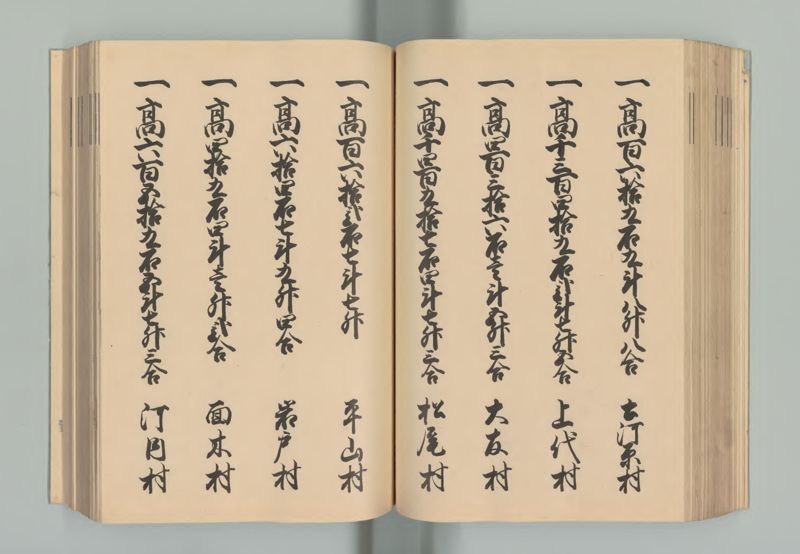 一高百六拾九石九斗八升八合 古河原村
一高千三百四拾九石弐斗七升六合 上代村
一高四百三拾六石壱斗五升三合 大友村
一高千四百九拾七石四斗七升三合 松尾村
一高百六拾弐石七斗七升 平山村
一高六拾四石七斗九升四合 岩戸村
一高四拾九石四斗壱升弐合 面木村
一高六百五拾九石五斗七升三合 河内村